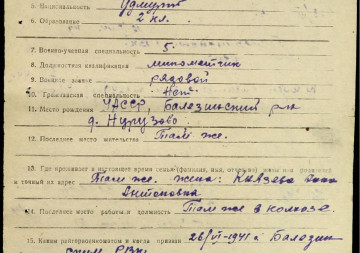 5. Национальность Удмурт
6. Образование 2 кл.
7. Военно-учетная специальность 5.
8. Должностная квалификация минометчик
9. Воинское звание рядовой
10. Гражданская специальность нет
11. Место рождения УАССР, Балезинский р-н
д. Нурызово
12. Последнее место жительства Там же.
13. Где проживает в настоящее время семья (фамилия, имя, отчество) жены или родителей
и точный их адрес Там же. жена: Князева
Антоновна
14. Последнее место работы и должность Там же в колхозе.
15. Каким райгорвоенкоматом и когда призван 26/VI-1941 г. Балезин
ским РВК